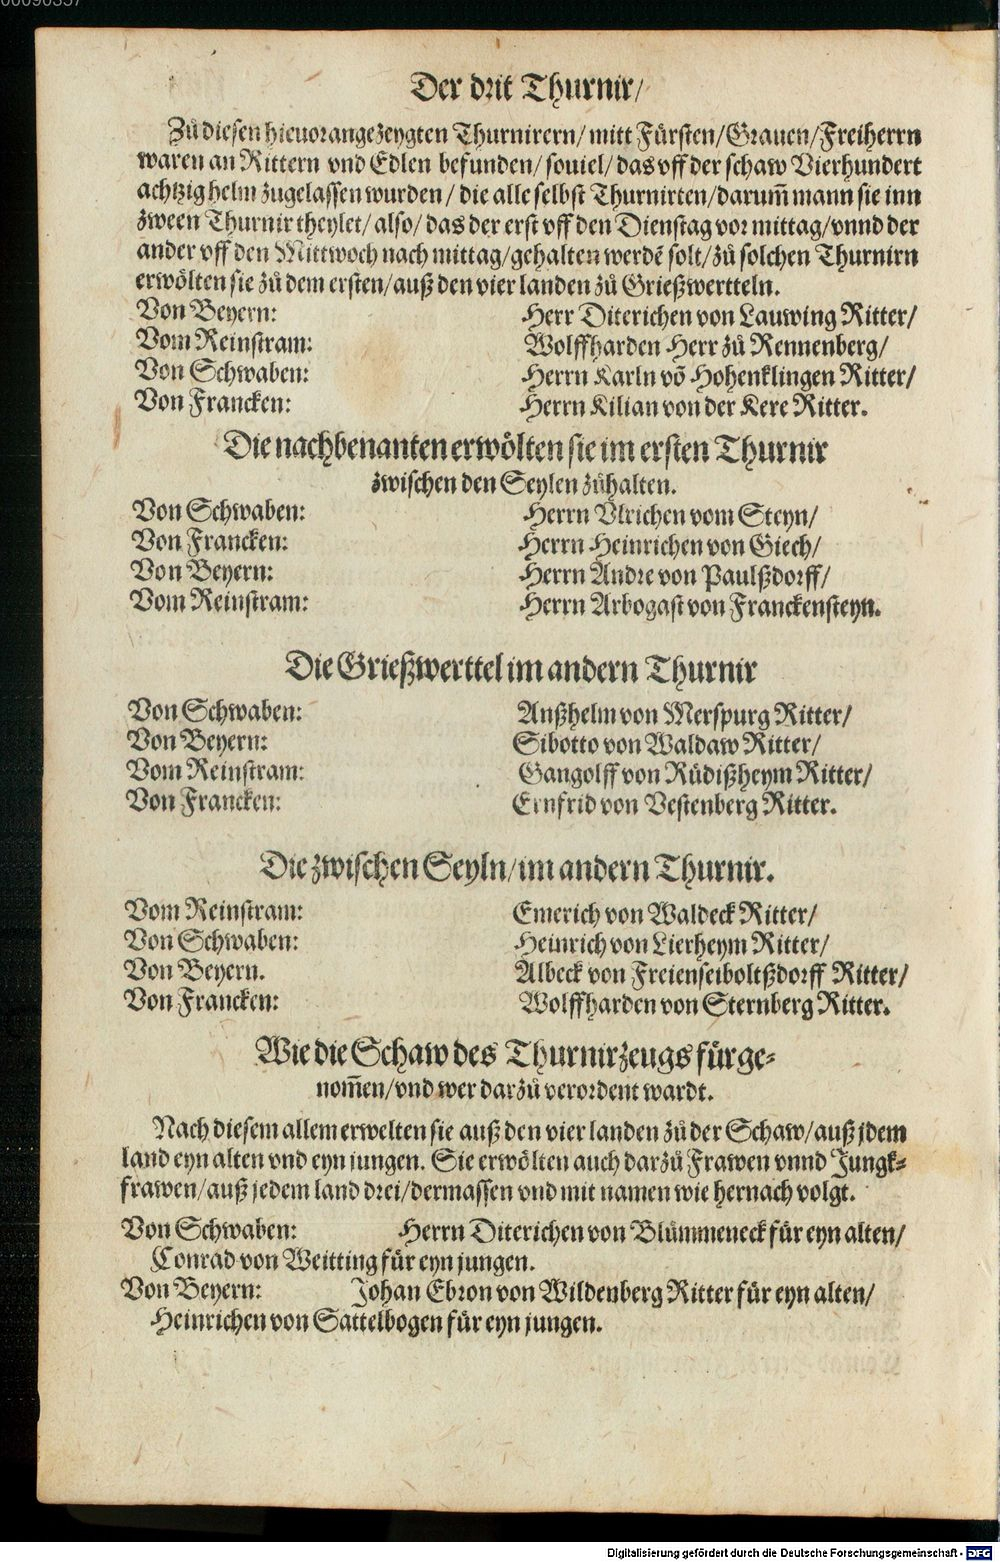 Der drit Thurnir/
Zů diesen hieuor angezeygten Thurnirern/ mitt Fürsten/ Grauen/ Freiherrn
waren an Rittern vnd Edlen befunden/ souiel/ das vff der schaw Vierhundert
achtzig helm zugelassen wurden/ die alle selbst Thurnirten/ darum̃ mann sie inn
zween Thurnir theylet/ also/ das der erst vff den Dienstag vor mittag/ vnnd der
ander vff den Mittwoch nach mittag/ gehalten werdẽ solt/ zů solchen Thurnirn
erwölten sie zů dem ersten/ auß den vier landen zů Grießwertteln.
Von Beyern: Herr Diterichen von Lauwing Ritter/
Vom Reinstram: Wolffharden Herr zů Rennenberg/
Von Schwaben: Herrn Karln võ Hohenklingen Ritter/
Von Francken: Herrn Kilian von der Kere Ritter.
Die nachbenanten erwölten sie im ersten Thurnir
zwischen den Seylen zůhalten.
Von Schwaben: Herrn Vlrichen vom Steyn/
Von Francken: Herrn Heinrichen von Giech/
Von Beyern: Herrn Andre von Paulßdorff/
Vom Reinstram: Herrn Arbogast von Franckensteyn.
Die Grießwerttel im andern Thurnir
Von Schwaben: Anßhelm von Merspurg Ritter/
Von Beyern: Sibotto von Waldaw Ritter/
Vom Reinstram: Gangolff von Rüdißheym Ritter/
Von Francken: Ernfrid von Vestenberg Ritter.
Die zwischen Seyln/ im andern Thurnir.
Vom Reinstram: Emerich von Waldeck Ritter/
Von Schwaben: Heinrich von Lierheym Ritter/
Von Beyern. Albeck von Freienseiboltßdorff Ritter/
Von Francken: Wolffharden von Sternberg Ritter.
Wie die Schaw des Thurnirzeugs fürge-
nom̃en/ vnd wer darzů verordent wardt.
Nach diesem allem erwelten sie auß den vier landen zů der Schaw/ auß jdem
land eyn alten vnd eyn jungen. Sie erwölten auch darzů Frawen vnnd Jungk-
frawen/ auß jedem land drei/ dermassen vnd mit namen wie hernach volgt.
Von Schwaben: Herrn Diterichen von Blůmmeneck für eyn alten/
Conrad von Weitting für eyn jungen.
Von Beyern: Johan Ebron von Wildenberg Ritter für eyn alten/
Heinrichen von Sattelbogen für eyn jungen.
Digitalisierung gefördert durch die Deutsche Forschungsgemeinschaft - DFG